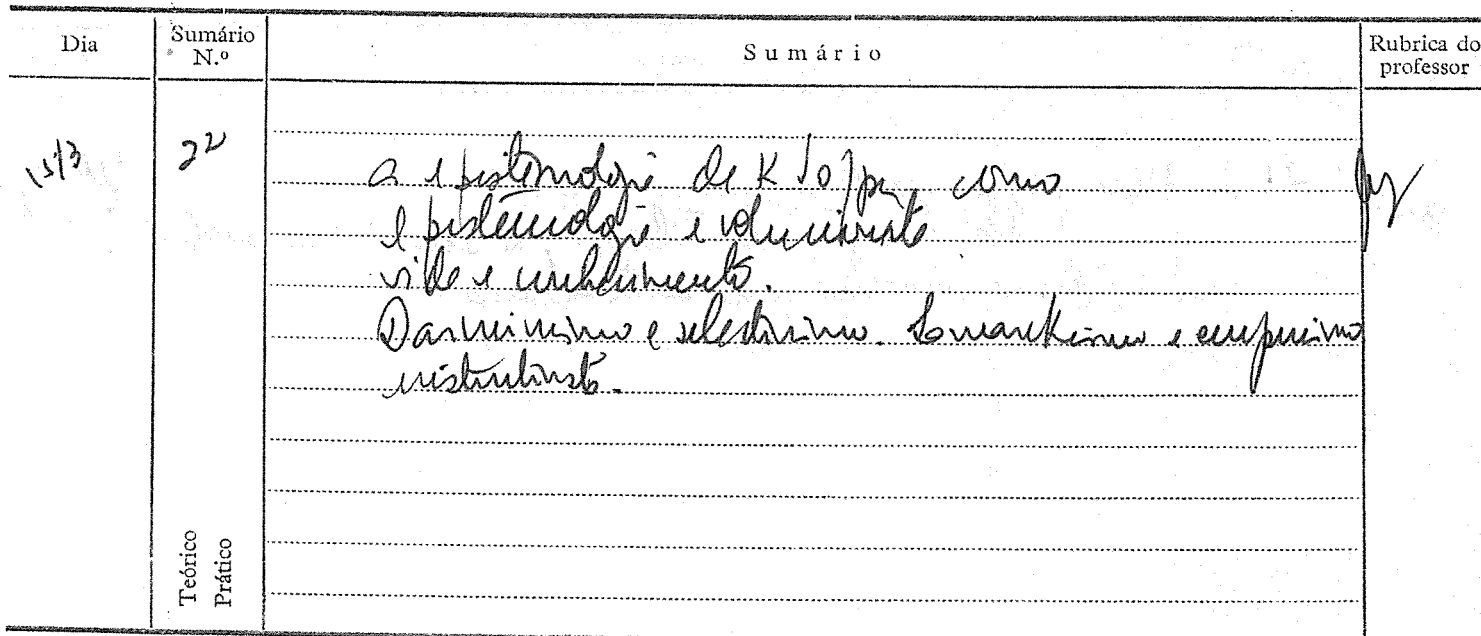 Dia
Sumário N.º
Sumário
Rubrica do professor
15/3
22
A epistemologia de K Popper como
epistemologia evolucionista
vida e conhecimento.
Darwinismo e selectivismo. Lamarckismo e empirismo
Teórico
Prático